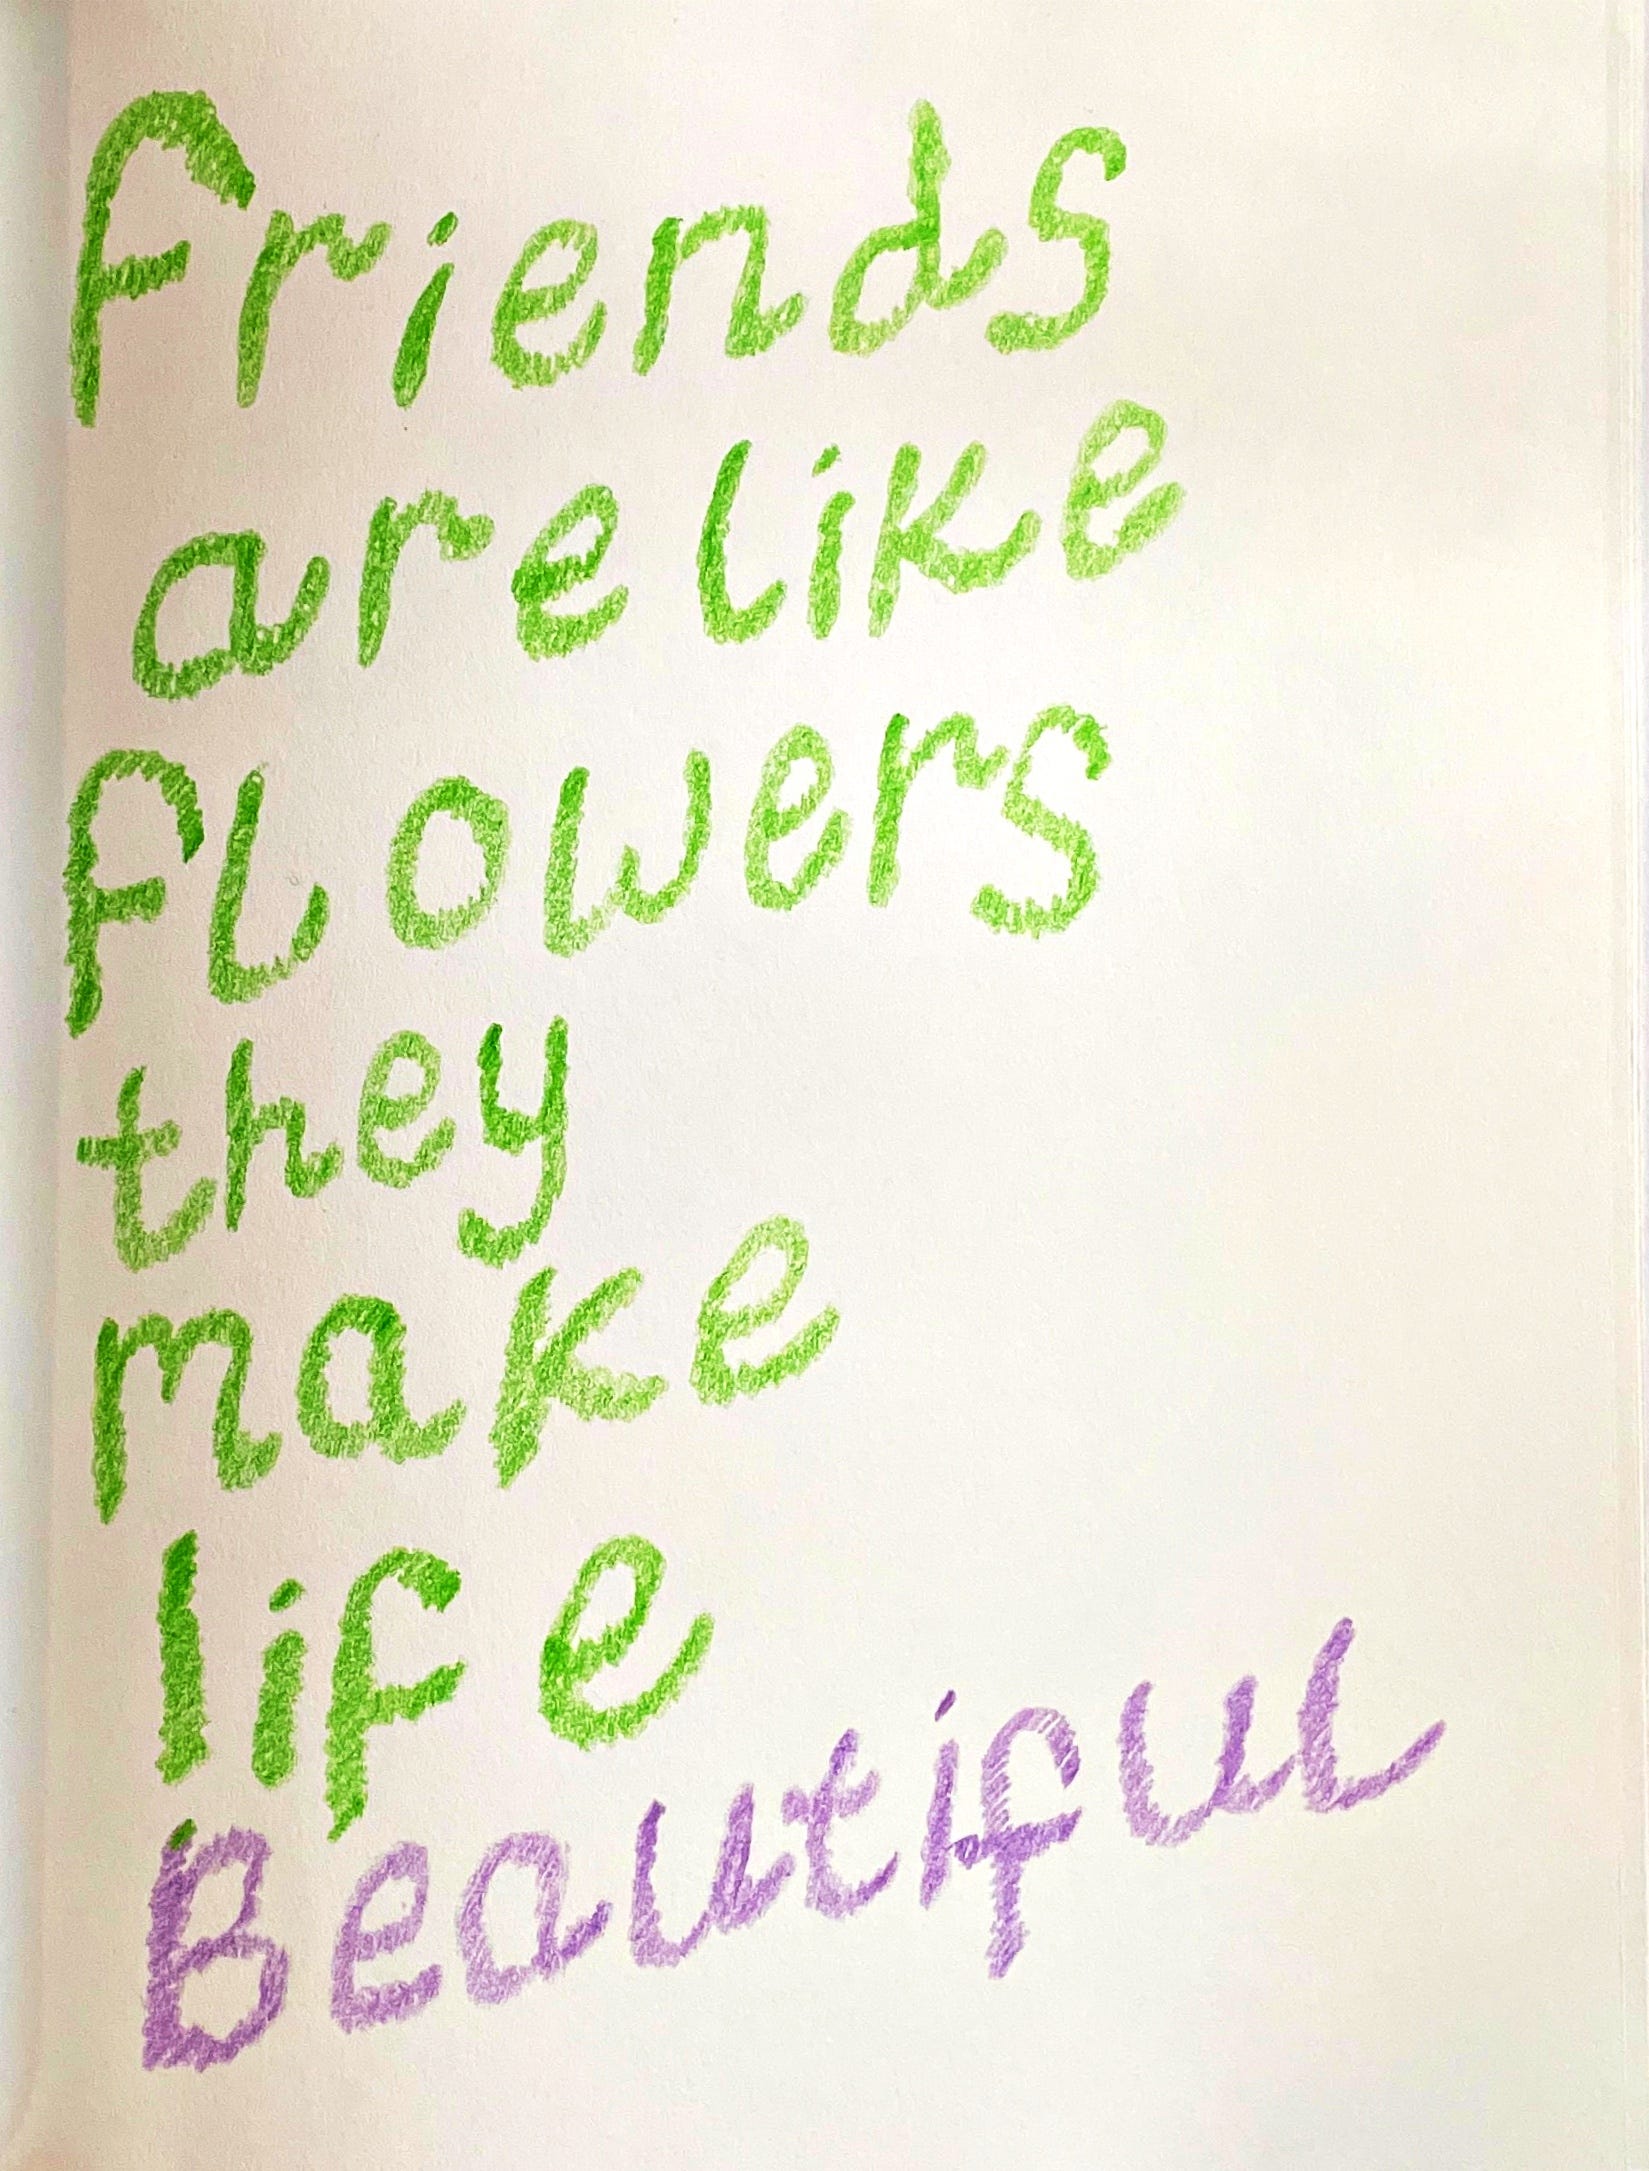 Friends
are like
Flowers
they
make
life
Beautiful